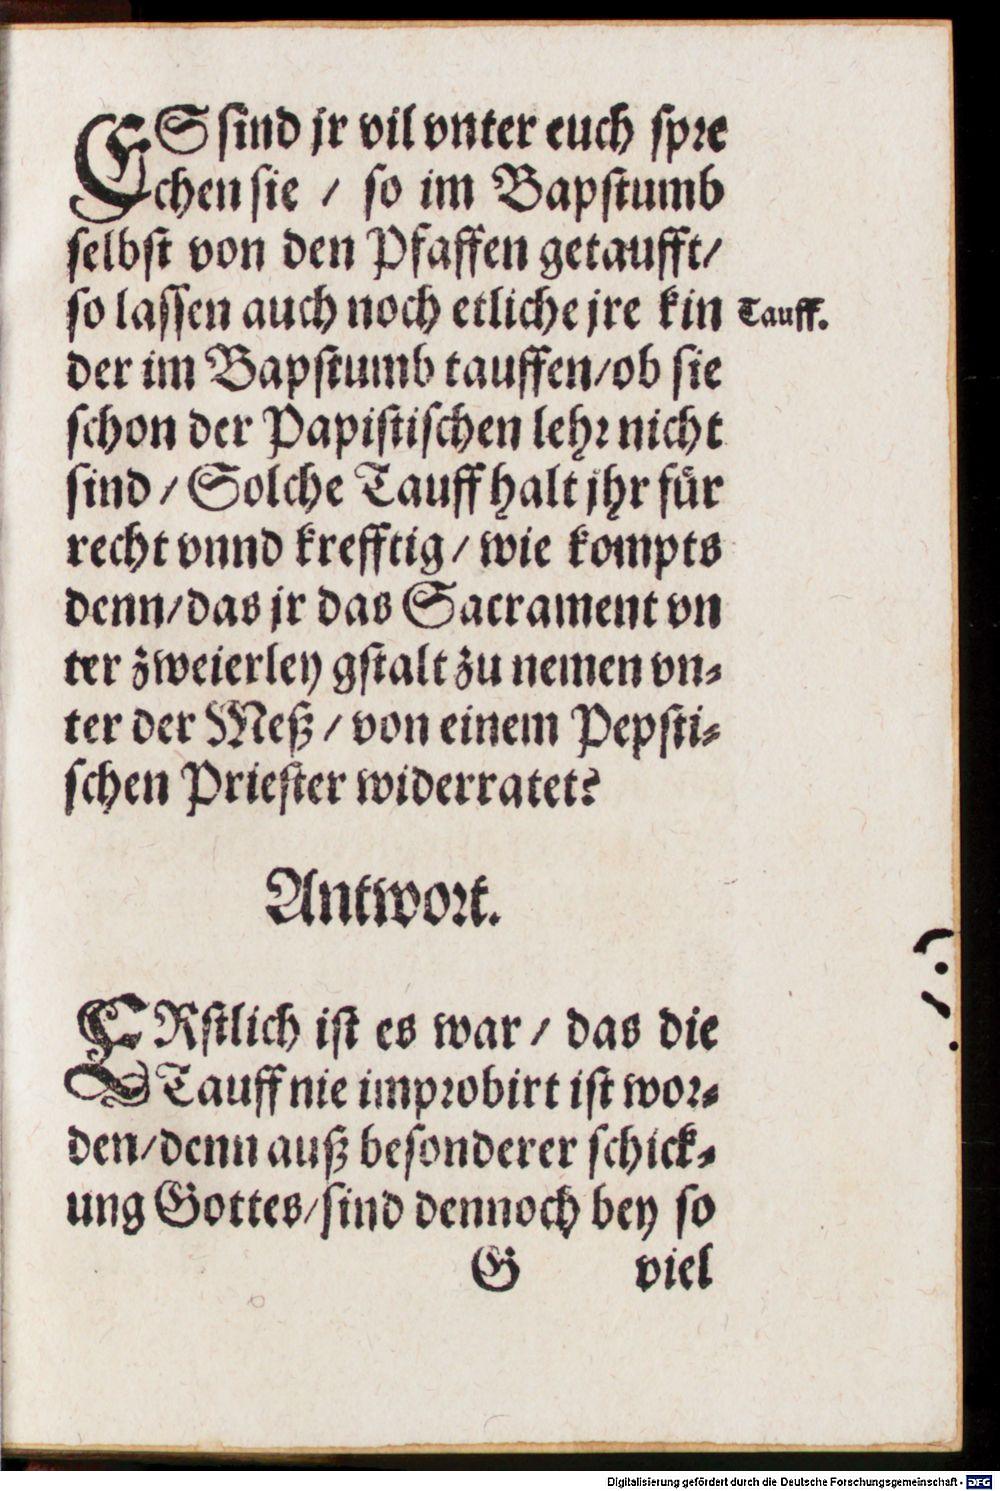 ES sind jr vil vnter euch spre
chen sie / so im Bapstumb
selbst von den Pfaffen getaufft/
so lassen auch noch etliche jre kin
Tauff.
der im Bapstumb tauffen/ob sie
schon der Papistischen lehr nicht
sind / Solche Tauff halt jhr für
recht vnnd krefftig / wie kompts
denn/das jr das Sacrament vn
ter zweierley gstalt zu nemen vn-
ter der Meß / von einem Pepsti-
schen Priester widerratet?
Antwort.
ERstlich ist es war / das die
Tauff nie improbirt ist wor-
den/denn auß besonderer schick-
ung Gottes/sind dennoch bey so
G viel
Digitalisierung gefördert durch die Deutsche Forschungsgemeinschaft - DFG